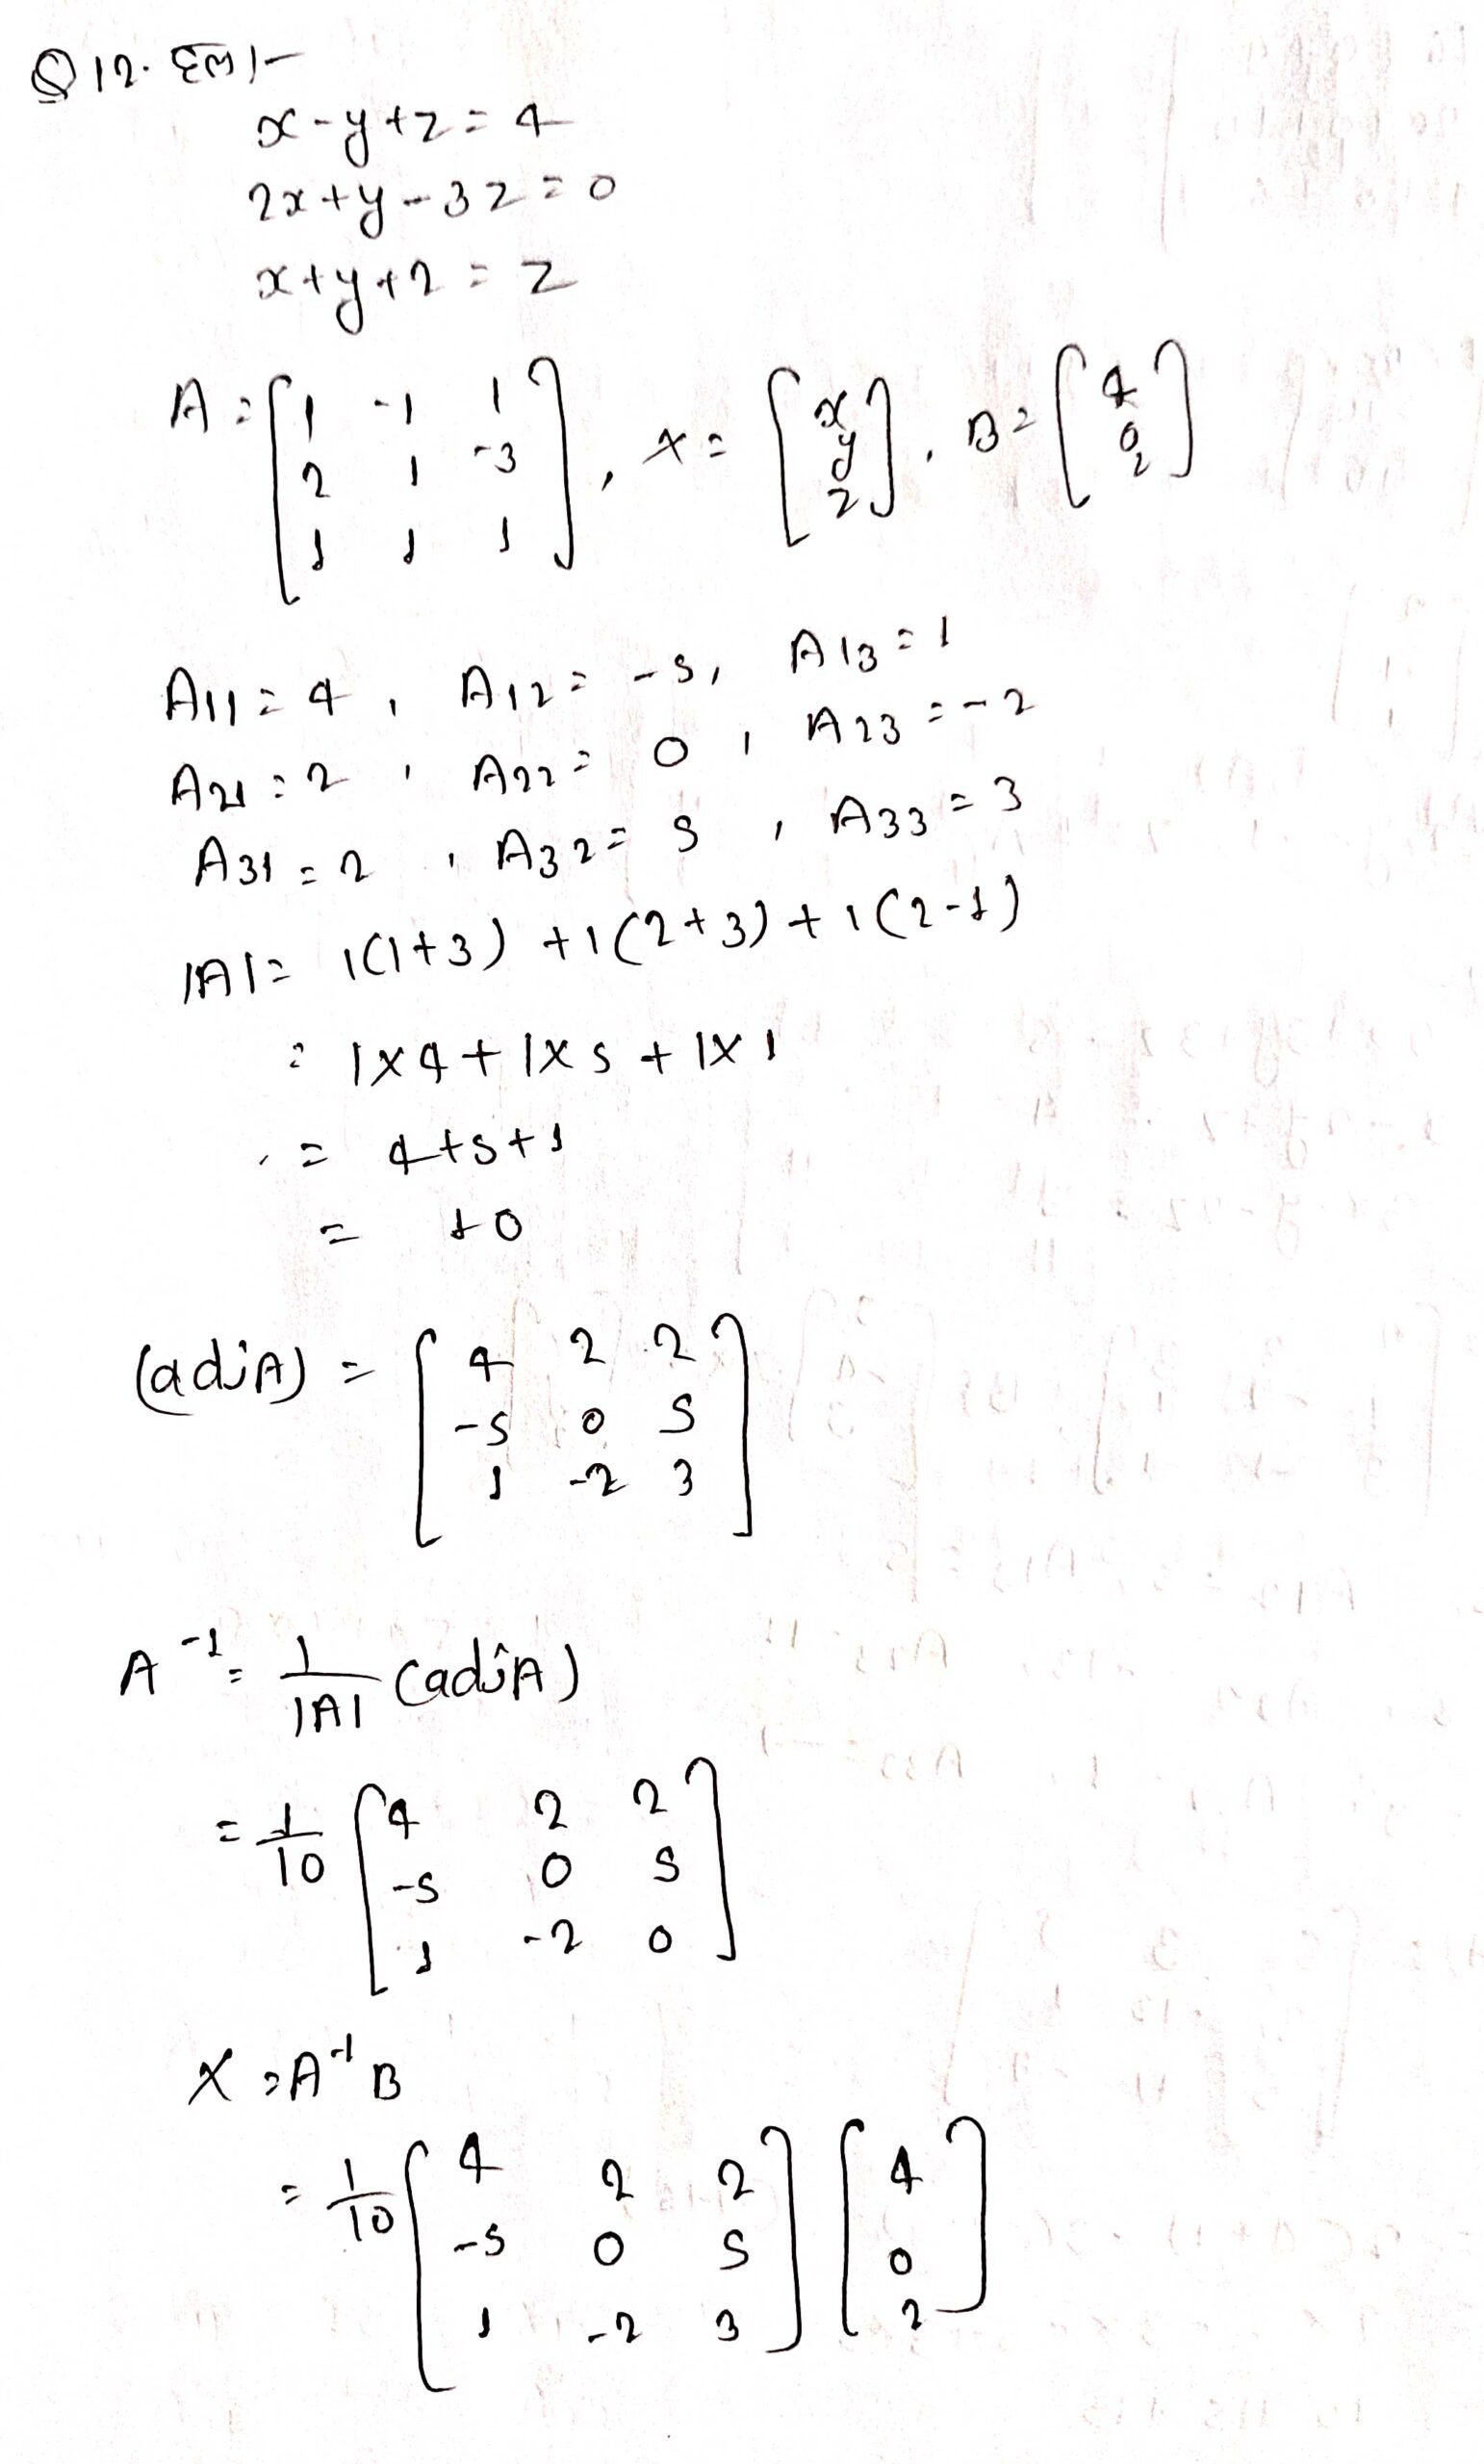 Q 12. हल :-
x - y + z = 4
2x + y - 3z = 0
x + y + 2 = z
A = [1 -1 1
2 1 -3
1 1 1], X = [x
y
z], B = [4
0
2]
A11 = 4, A12 = -5, A13 = 1
A21 = 2, A22 = 0, A23 = -2
A31 = 2, A32 = 5, A33 = 3
|A| = 1(1+3) + 1(2+3) + 1(2-1)
= 1x4 + 1x5 + 1x1
= 4+5+1
= 10
(adjA) = [4 2 2
-5 0 5
1 -2 3]
A^-1 = 1/|A| (adjA)
= 1/10 [4 2 2
-5 0 5
1 -2 0]
X = A^-1 B
= 1/10 [4 2 2
-5 0 5
1 -2 3] [4
0
2]